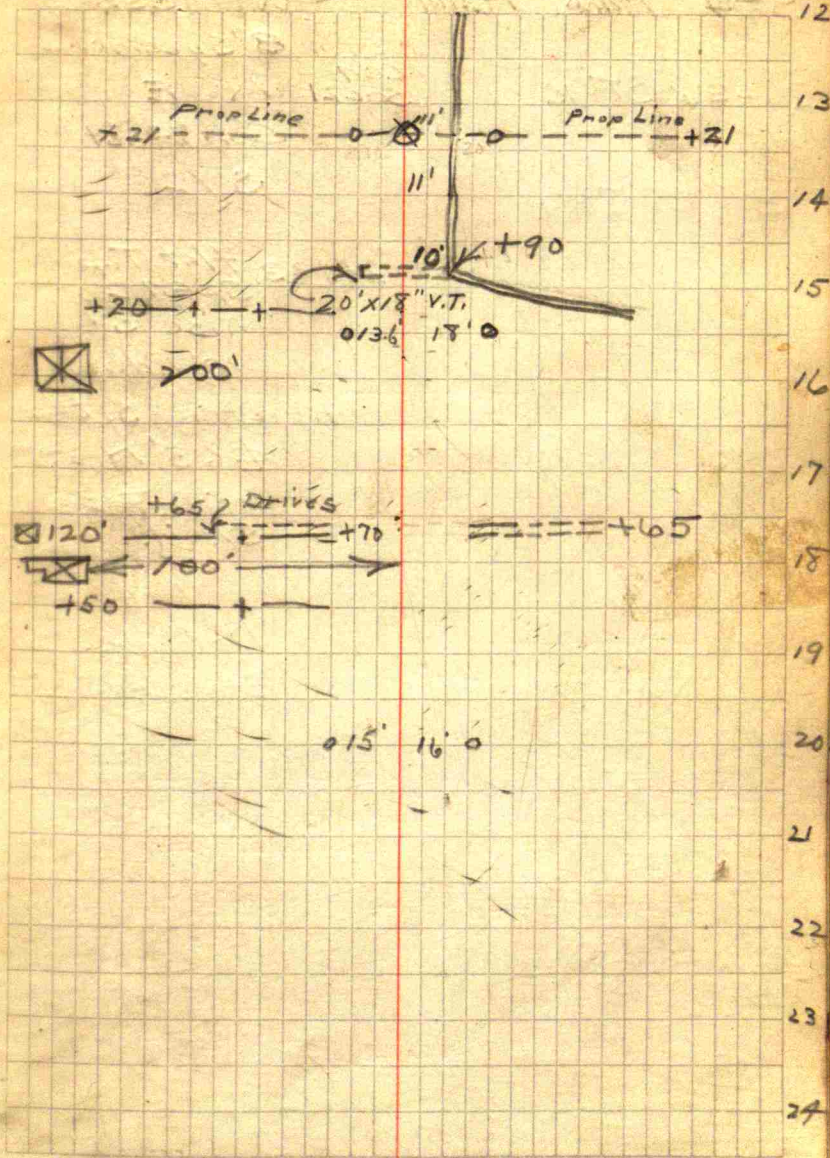 12
13
Prop Line 11' Prop Line
+21 +21
11'
14
10' +90
15
+20 20'X18" V.T.
013.6' 18' 0
200'
16
17
+65 Drives
120' +70' +65
18
100'
+50
19
015' 16' 0
20
21
22
23
24